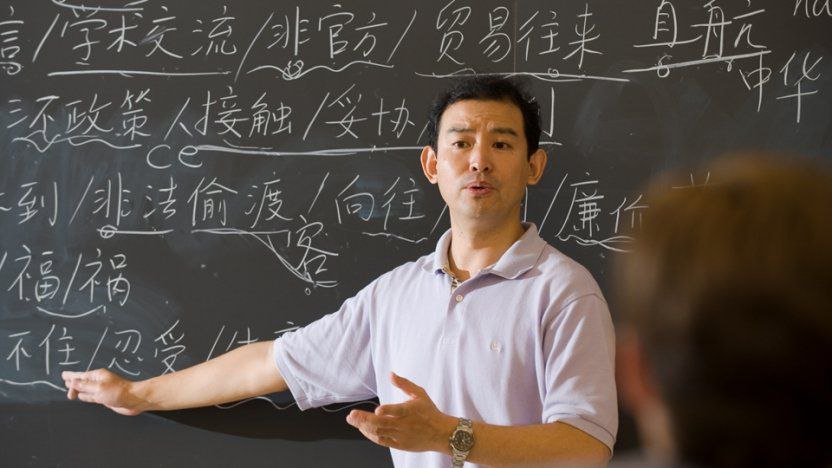 言/学术交流/非官方/贸易往来 直航
中华
政策/接触/妥协/
ce
到/非法偷渡/向往/廉价
客
/福/祸
不住/忍受/